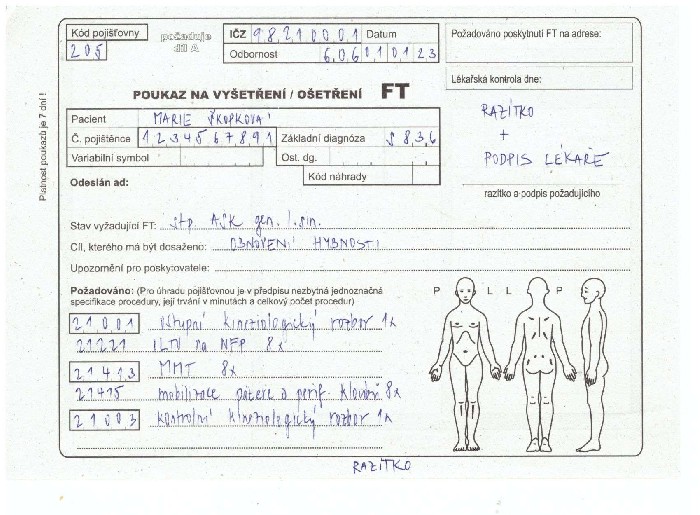 Kód pojišťovny
205
požaduje
díl A
IČZ 98210001 Datum
Odbornost 606 010123
Požadováno poskytnutí FT na adrese:
Lékařská kontrola dne:
POUKAZ NA VYŠETŘENÍ / OŠETŘENÍ FT
Platnost poukazu je 7 dní !
Pacient MARIE ŠKOPKOVÁ
Č. pojištěnce 1234567891 Základní diagnóza S836
Variabilní symbol Ost. dg.
Kód náhrady
Odeslán ad:
RAZÍTKO
+
PODPIS LÉKAŘE
razítko a podpis požadujícího
Stav vyžadující FT: stp ASK gen. l. sin.
Cíl, kterého má být dosaženo: OBNOVENÍ HYBNOSTI
Upozornění pro poskytovatele:
Požadováno: (Pro úhradu pojišťovnou je v předpisu nezbytná jednoznačná
specifikace procedury, její trvání v minutách a celkový počet procedur)
21001 vstupní kineziologický rozbor 1x
21221 ILTV na NFP 8x
21413 MMT 8x
21415 mobilizace páteře a perif. kloubů 8x
21003 kontrolní kineziologický rozbor 1x
P L L P
RAZÍTKO